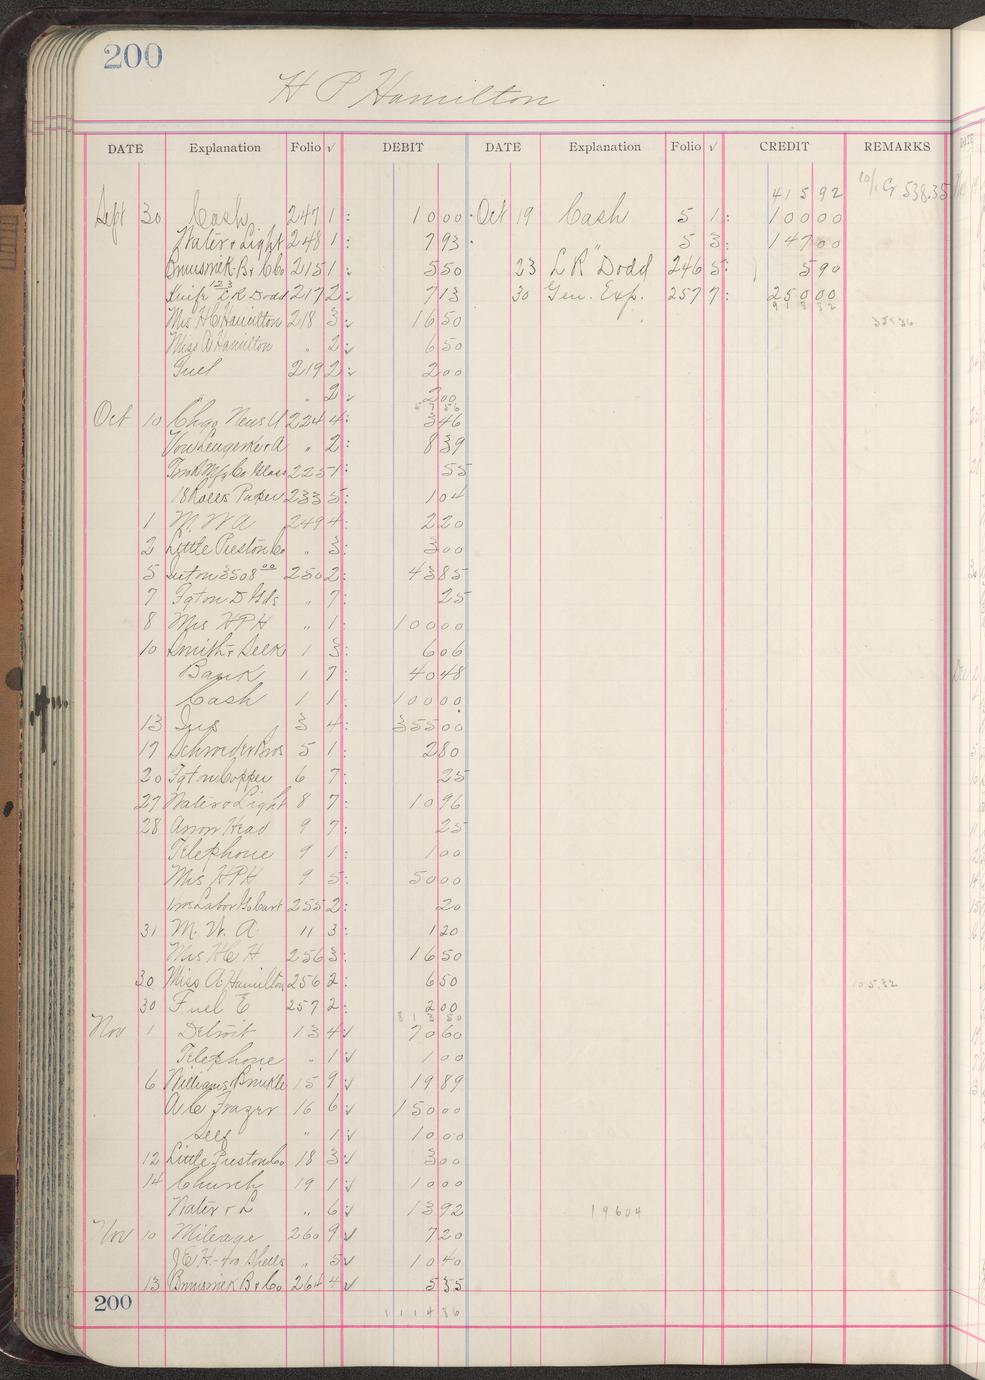 200
H P Hamilton
DATE Explanation Folio √ DEBIT DATE Explanation Folio √ CREDIT REMARKS
415 92 10/1 Cr 538.35
Sept 30 Cash 247 1 10 00 Oct 19 Cash 5 1 100 00
Water & Light 248 1 7 93 " 5 3 147 00
B. & C Co 215 1 5 50 23 L R Dodd 246 5 5 90
Knife 123 L R Dodd 217 2 7 13 30 Gen. Exp. 257 7 250 00
918 82
Mrs H C Hamilton 218 3 16 50
Miss A Hamilton " 2 6 50
Fuel 219 2 2 00
" 2 2 00
Oct 10 Chgo News 224 4 3 46
" 2 8 39
Mfg Co 225 1 55
18 Rolls Paper 233 5 1 04
1 M. W A 249 4 2 20
2 Little Preston Co " 3 3 00
5 Int on 3508 00 250 2 43 85
7 Fgt on D Gds " 7 25
8 Mrs H P H " 1 100 00
10 Smith & 1 3 6 06
Bank 1 7 40 48
Cash 1 1 100 00
13 Ins 3 4 355 00
17 Bros 5 1 2 80
20 Fgt on Copper 6 7 25
27 Water & Light 8 7 10 96
28 Arrow Head 9 7 25
Telephone 9 1 1 00
Mrs H P H 9 5 50 00
Labor Go Cart 255 2 20
31 M. W. A. 11 3 1 20
Mrs H C H 256 3 16 50
30 Miss A. Hamilton 256 2 6 50 105.82
30 Fuel E 257 2 2 00
813 50
Nov 1 Detroit 13 4 √ 70 60
Telephone " 1 √ 1 00
6 Williams 15 9 √ 19 89
A C Frazer 16 6 √ 150 00
Self " 1 √ 10 00
12 Little Preston Co 18 3 √ 3 00
14 Church 19 1 √ 10 00
Water & L " 6 √ 13 92 196 04
Nov 10 Mileage 260 9 √ 7 20
J E H - Shells " 5 √ 10 40
13 B & Co 264 4 √ 5 35
200
1114 86